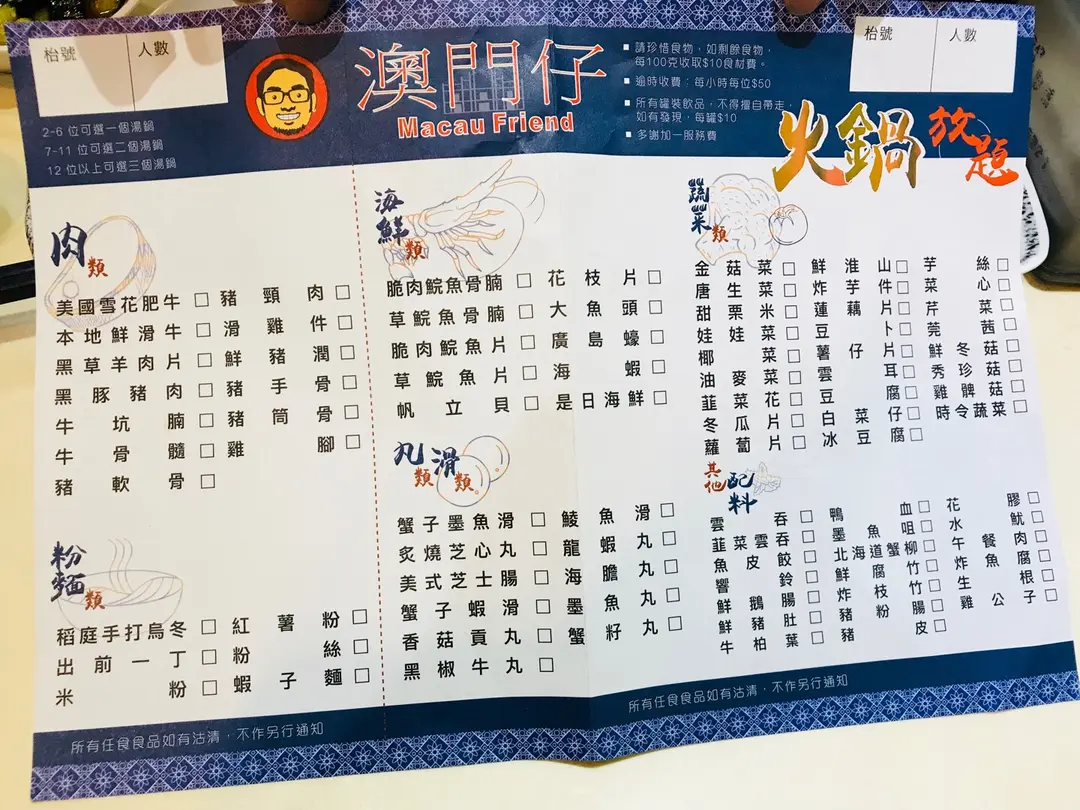 枱號
人數
2-6 位可選一個湯鍋
7-11 位可選二個湯鍋
12 位以上可選三個湯鍋
澳門仔
Macau Friend
請珍惜食物，如剩餘食物，
每100克收取$10食材費。
逾時收費：每小時每位$50
所有罐裝飲品，不得擅自帶走，
如有發現，每罐$10
多謝加一服務費
枱號
人數
火鍋放題
肉類
美國雪花肥牛 □ 豬頸肉 □
本地鮮滑牛 □ 滑雞件 □
黑草羊肉片 □ 鮮豬潤 □
黑豚豬肉 □ 豬手骨 □
牛坑腩 □ 豬筒骨 □
牛骨髓 □ 雞腳 □
豬軟骨 □
粉麵類
稻庭手打烏冬 □ 紅薯粉 □
出前一丁 □ 粉絲 □
米粉 □ 蝦子麵 □
海鮮類
脆肉鯇魚骨腩 □ 花枝片 □
草鯇魚骨腩 □ 大魚頭 □
脆肉鯇魚片 □ 廣島蠔 □
草鯇魚片 □ 海蝦 □
帆立貝 □ 是日海鮮 □
丸類滑類
蟹子墨魚滑 □ 鯪魚滑 □
炙燒芝心丸 □ 龍蝦丸 □
美式芝士腸 □ 海膽丸 □
蟹子蝦滑 □ 墨魚丸 □
香菇貢丸 □ 蟹籽丸 □
黑椒牛丸 □
蔬菜類
金菇菜 □ 鮮淮山 □ 芋絲 □
唐生菜 □ 炸芋件 □ 菜心 □
甜粟米 □ 蓮藕片 □ 芹菜 □
娃娃菜 □ 豆卜 □ 莞茜 □
椰菜 □ 薯仔片 □ 鮮冬菇 □
油麥菜 □ 雲耳 □ 秀珍菇 □
韮菜花 □ 豆腐 □ 雞髀菇 □
冬瓜片 □ 白菜仔 □ 時令蔬菜 □
蘿蔔片 □ 冰豆腐 □
其他配料
雲吞 □ 鴨血 □ 花膠 □
韮菜雲吞 □ 墨魚咀 □ 水魷 □
魚皮餃 □ 北海道蟹柳 □ 午餐肉 □
響鈴 □ 鮮腐竹 □ 炸魚腐 □
鮮鵝腸 □ 炸枝竹 □ 生根 □
鮮豬肚 □ 豬粉腸 □ 雞公子 □
牛柏葉 □ 豬皮 □
所有任食食品如有沽清，不作另行通知
所有任食食品如有沽清，不作另行通知